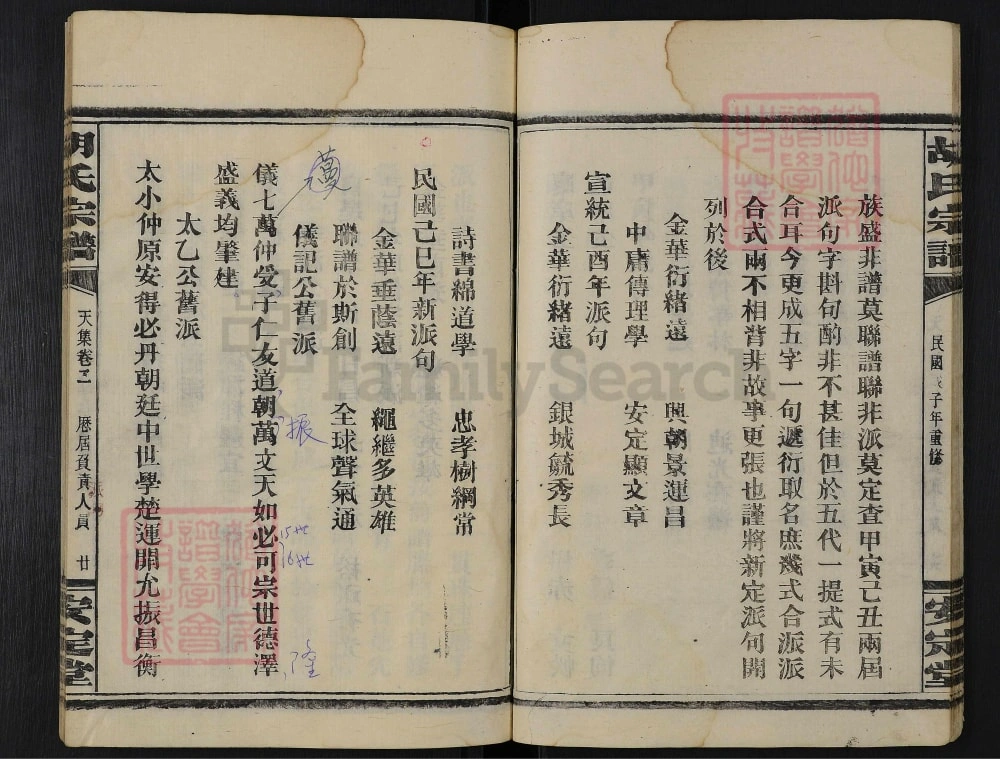 胡氏宗譜
民國戊子年重修
安定堂
族盛非譜莫聯譜聯非派莫定查甲寅己丑兩屆
派句字斟句酌非不甚佳但於五代一提式有未
合耳今更成五字一句遞衍取名庶幾式合派派
合式兩不相背非故事更張也謹將新定派句開
列於後
金華衍緒遠 興朝景運昌
中庸傳理學 安定顯文章
宣統己酉年派句
金華衍緒遠 銀城毓秀長
詩書綿道學 忠孝樹綱常
民國己巳年新派句
金華垂蔭遠 繩繼多英雄
聯譜於斯創 全球聲氣通
儀記公舊派
儀七萬仲受子仁友道朝萬文天如必可宗世德澤
盛義均肇建
太乙公舊派
太小仲原安得必丹朝廷中世學楚運開允振昌衡
胡氏宗譜
天集卷二
歷屆負責人員
廿
安定堂
振
15世
16世
隆
FamilySearch